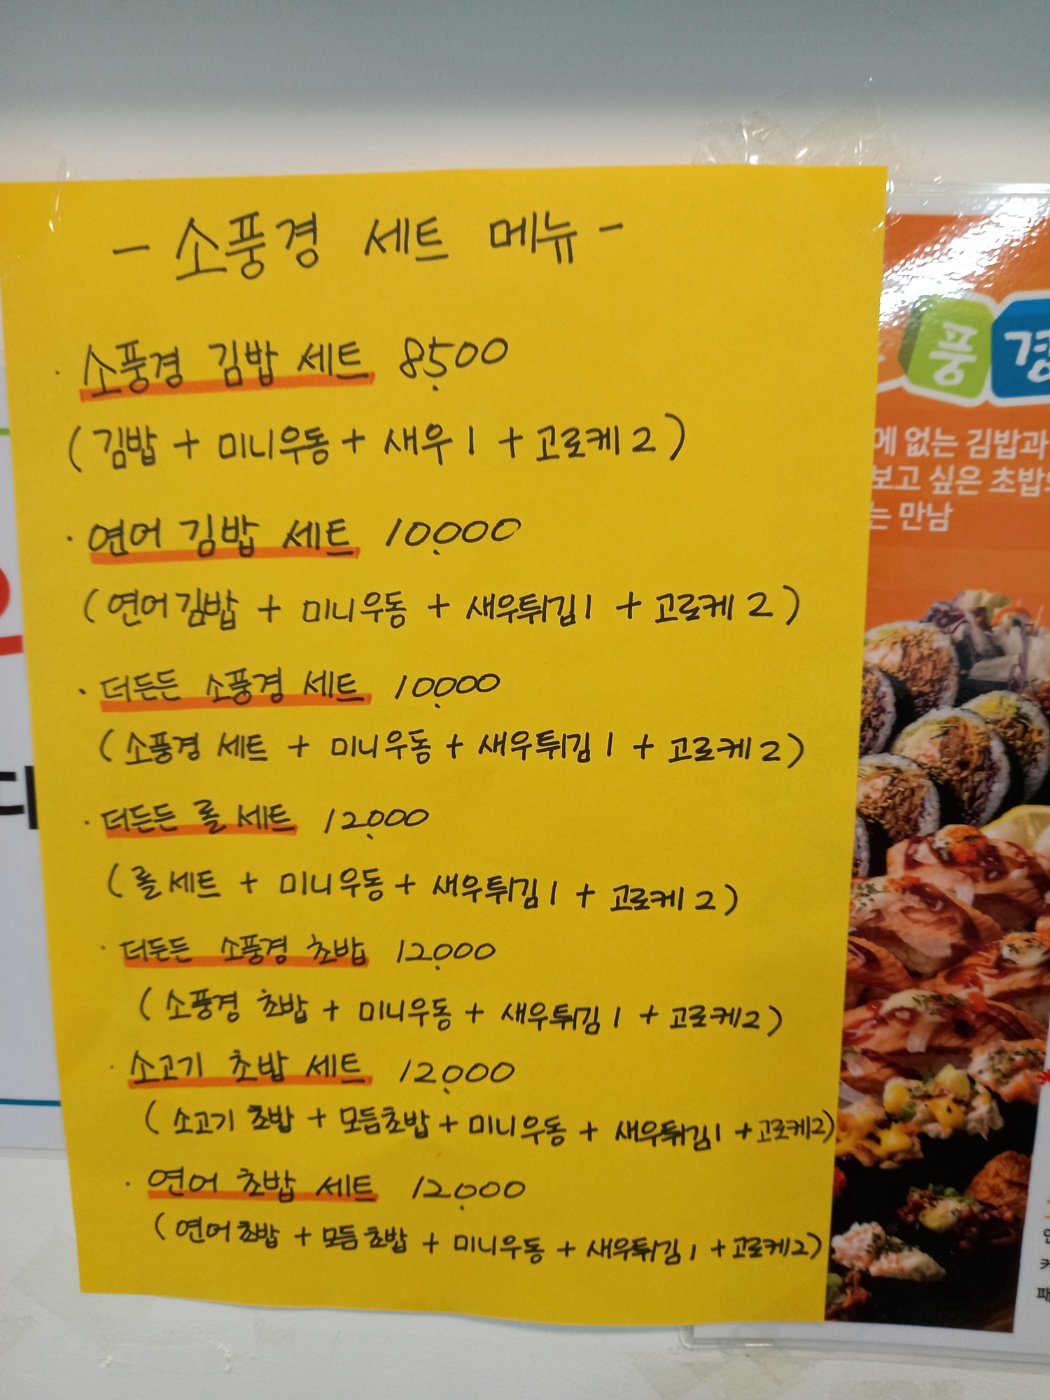 - 소풍경 세트 메뉴 -
· 소풍경 김밥 세트 8,500
(김밥 + 미니우동 + 새우1 + 고로케2)
· 연어 김밥 세트 10,000
(연어김밥 + 미니우동 + 새우튀김1 + 고로케2)
· 더든든 소풍경 세트 10,000
(소풍경 세트 + 미니우동 + 새우튀김1 + 고로케2)
· 더든든 롤 세트 12,000
(롤세트 + 미니우동 + 새우튀김1 + 고로케2)
· 더든든 소풍경 초밥 12,000
(소풍경 초밥 + 미니우동 + 새우튀김1 + 고로케2)
· 소고기 초밥 세트 12,000
(소고기 초밥 + 모듬초밥 + 미니우동 + 새우튀김1 + 고로케2)
· 연어 초밥 세트 12,000
(연어초밥 + 모듬초밥 + 미니우동 + 새우튀김1 + 고로케2)
풍경
에 없는 김밥과
보고 싶은 초밥의
는 만남